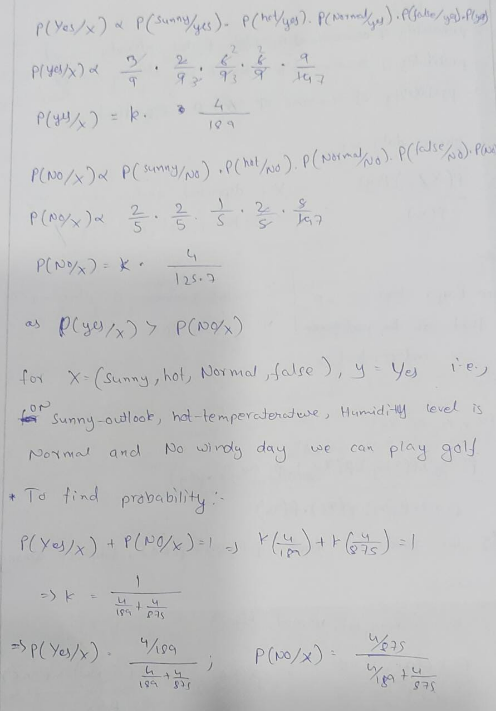 P(Yes/x) ∝ P(sunny/yes). P(hot/yes). P(Normal/yes). P(false/yes). P(yes)
P(yes/x) ∝ 3/9 . 2/9 3 . 6 2/9 3 . 6 2/9 . 9/14 7
P(yes/x) = k. 4/189
P(No/x) ∝ P(sunny/No) . P(hot/No). P(Normal/No). P(false/No). P(No
P(No/x) ∝ 2/5 . 2/5 . 1/5 . 2/5 . 5/14 7
P(No/x) = k . 4/125.7
as P(yes/x) > P(No/x)
for X = (sunny, hot, Normal, false), y = Yes i.e.,
ON sunny-outlook, hot-temperaterature, Humidity level is
Normal and No windy day we can play golf
* To find probability :-
P(Yes/x) + P(No/x) = 1 => k(4/189) + k(4/875) = 1
=> k = 1/(4/189 + 4/875)
=> P(Yes/x) . (4/189)/(4/189 + 4/875) ; P(No/x) = (4/875)/(4/189 + 4/875)